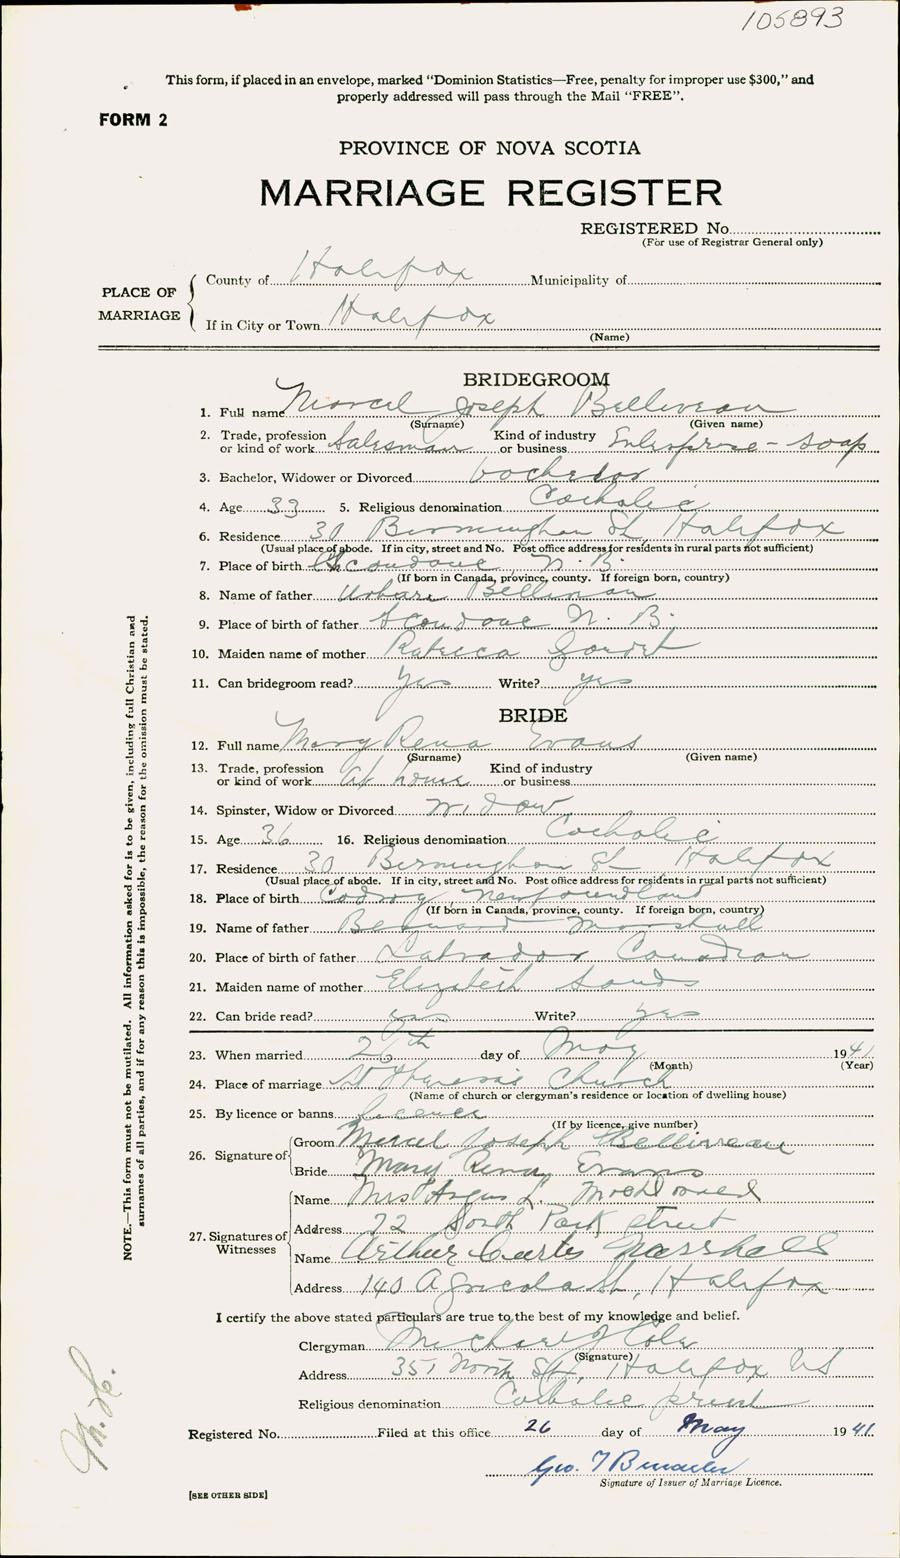 105893
This form, if placed in an envelope, marked "Dominion Statistics—Free, penalty for improper use $300," and
properly addressed will pass through the Mail "FREE".
FORM 2
PROVINCE OF NOVA SCOTIA
MARRIAGE REGISTER
REGISTERED No.
(For use of Registrar General only)
PLACE OF MARRIAGE
County of Halifax Municipality of
If in City or Town Halifax
(Name)
BRIDEGROOM
1. Full name Marcel Joseph Belliveau
(Surname) (Given name)
2. Trade, profession or kind of work Salesman Kind of industry or business Enterprise - soap
3. Bachelor, Widower or Divorced bachelor
4. Age 33 5. Religious denomination Catholic
6. Residence 30 Birmingham St, Halifax
(Usual place of abode. If in city, street and No. Post office address for residents in rural parts not sufficient)
7. Place of birth Scoudouc N. B.
(If born in Canada, province, county. If foreign born, country)
8. Name of father Urbain Belliveau
9. Place of birth of father Scoudouc N. B.
10. Maiden name of mother Goudet
11. Can bridegroom read? Yes Write? yes
BRIDE
12. Full name Mary Rena Evans
(Surname) (Given name)
13. Trade, profession or kind of work At home Kind of industry or business
14. Spinster, Widow or Divorced widow
15. Age 36 16. Religious denomination Catholic
17. Residence 30 Birmingham St Halifax
(Usual place of abode. If in city, street and No. Post office address for residents in rural parts not sufficient)
18. Place of birth Codroy Newfoundland
(If born in Canada, province, county. If foreign born, country)
19. Name of father Bernard Marshall
20. Place of birth of father Labrador Canadian
21. Maiden name of mother Elizabeth Sands
22. Can bride read? yes Write? yes
23. When married 26th day of May 1941
(Month) (Year)
24. Place of marriage St Theresa's Church
(Name of church or clergyman's residence or location of dwelling house)
25. By licence or banns licence
(If by licence, give number)
26. Signature of Groom Marcel Joseph Belliveau
Bride Mary Rena Evans
27. Signatures of Witnesses Name Mrs Angus L.
Address 22 South Park street
Name Arthur Curtis Marshall
Address 140 Agricola St, Halifax
I certify the above stated particulars are true to the best of my knowledge and belief.
Clergyman Michael J Cole
(Signature)
Address 351 North St, Halifax NS
Religious denomination Catholic priest
Registered No. Filed at this office 26 day of May 1941.
Geo. T
Signature of Issuer of Marriage Licence.
[SEE OTHER SIDE]
NOTE.—This form must not be mutilated. All information asked for is to be given, including full Christian and
surnames of all parties, and if for any reason this is impossible, the reason for the omission must be stated.